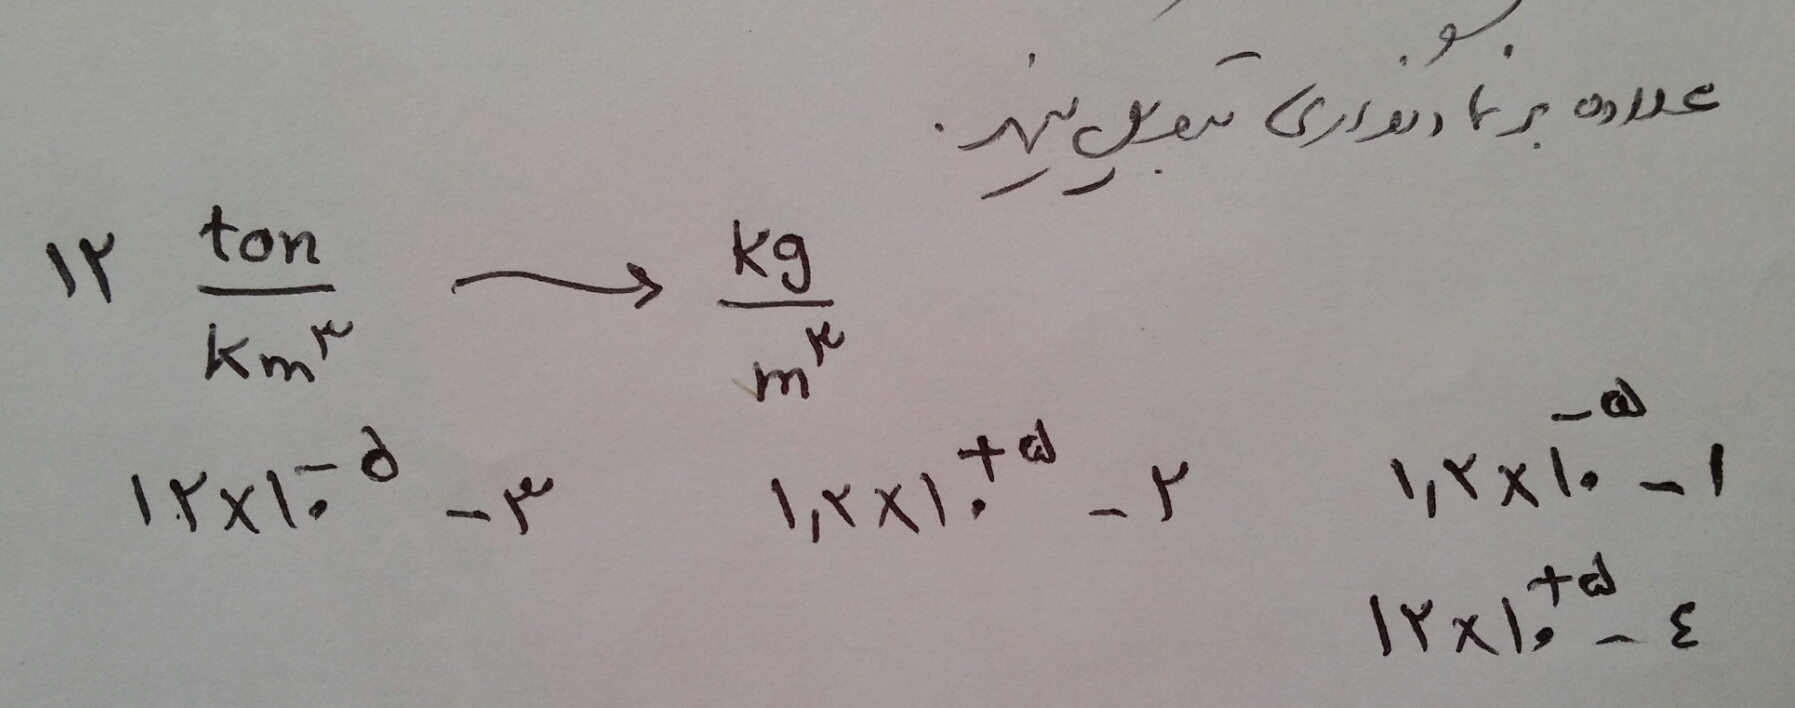 علاوه بر نمادگذاری تبدیل کنید.
۱۲ ton/km³ → kg/m³
۱,۲×۱۰^-۵ - ۱
۱,۲×۱۰^+۵ - ۲
۱۲×۱۰^-۵ - ۳
۱۲×۱۰^+۵ - ٤